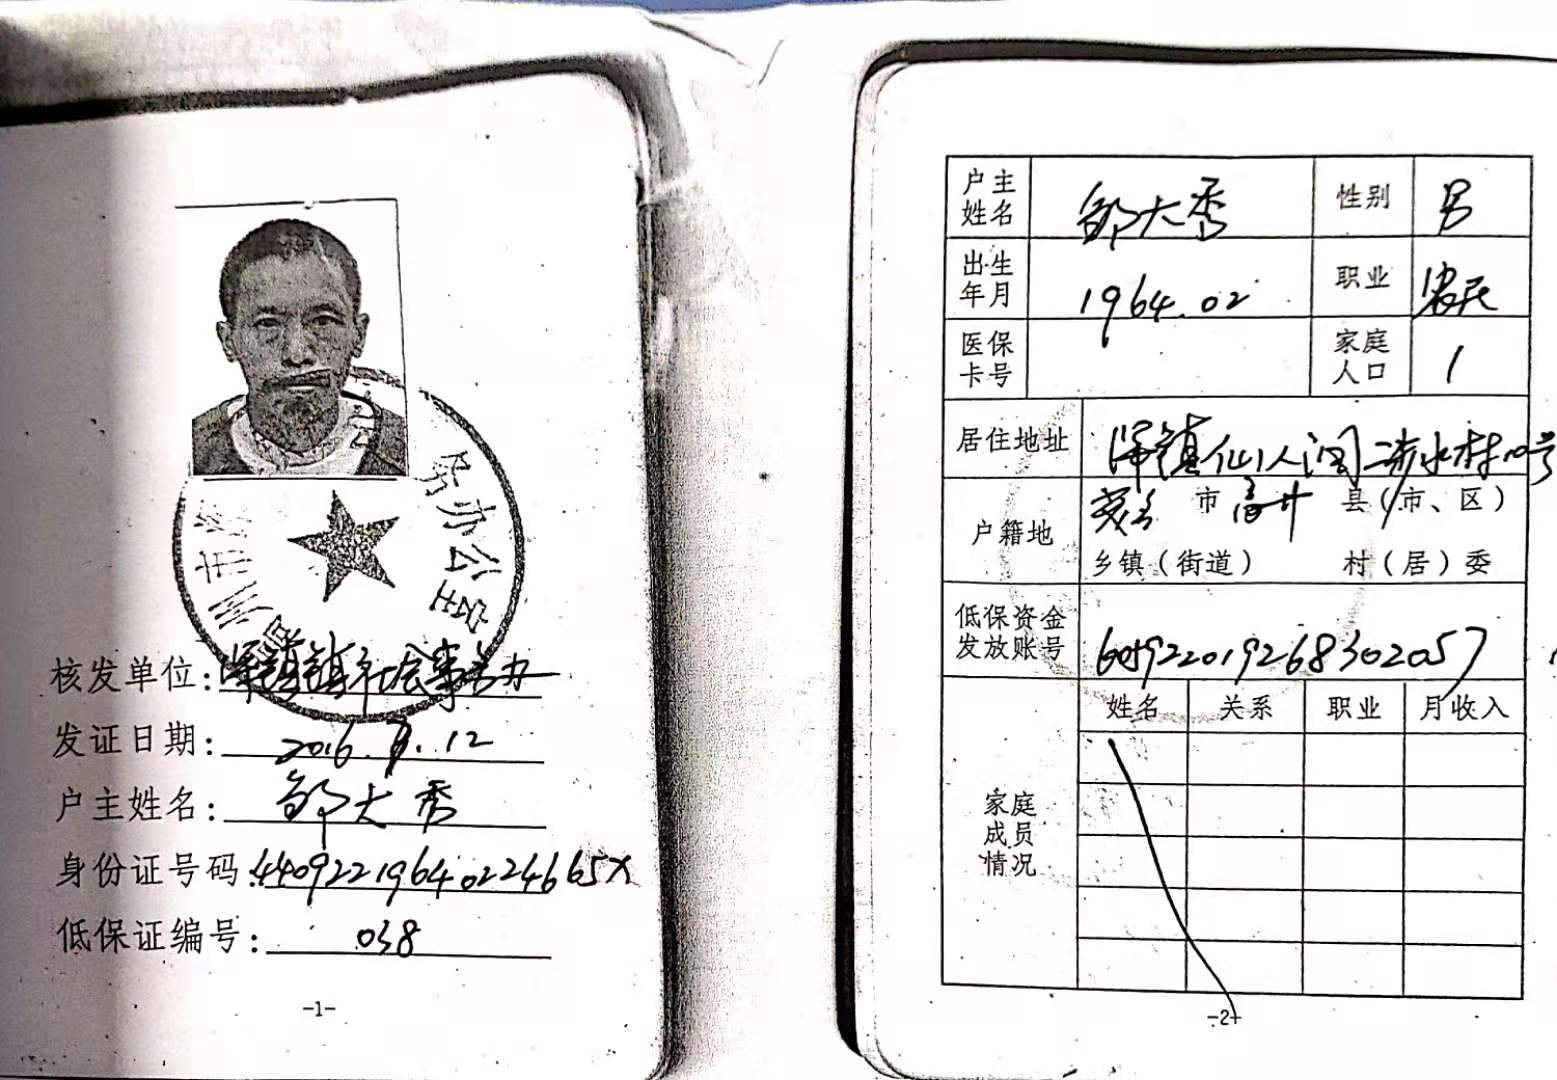 务办公室
州市
核发单位:潭头镇社会事务办
发证日期: 2016.9.12
户主姓名: 邹大秀
身份证号码:44092219640224665X
低保证编号: 038
-1-
户主姓名 邹大秀 性别 男
出生年月 1964.02 职业 农民
医保卡号 家庭人口 1
居住地址 镇仙人洞 水村10号
户籍地 茂名 市 高州 县(市、区)
乡镇(街道) 村(居)委
低保资金发放账号 605922019268302057
家庭成员情况 姓名 关系 职业 月收入
-2-